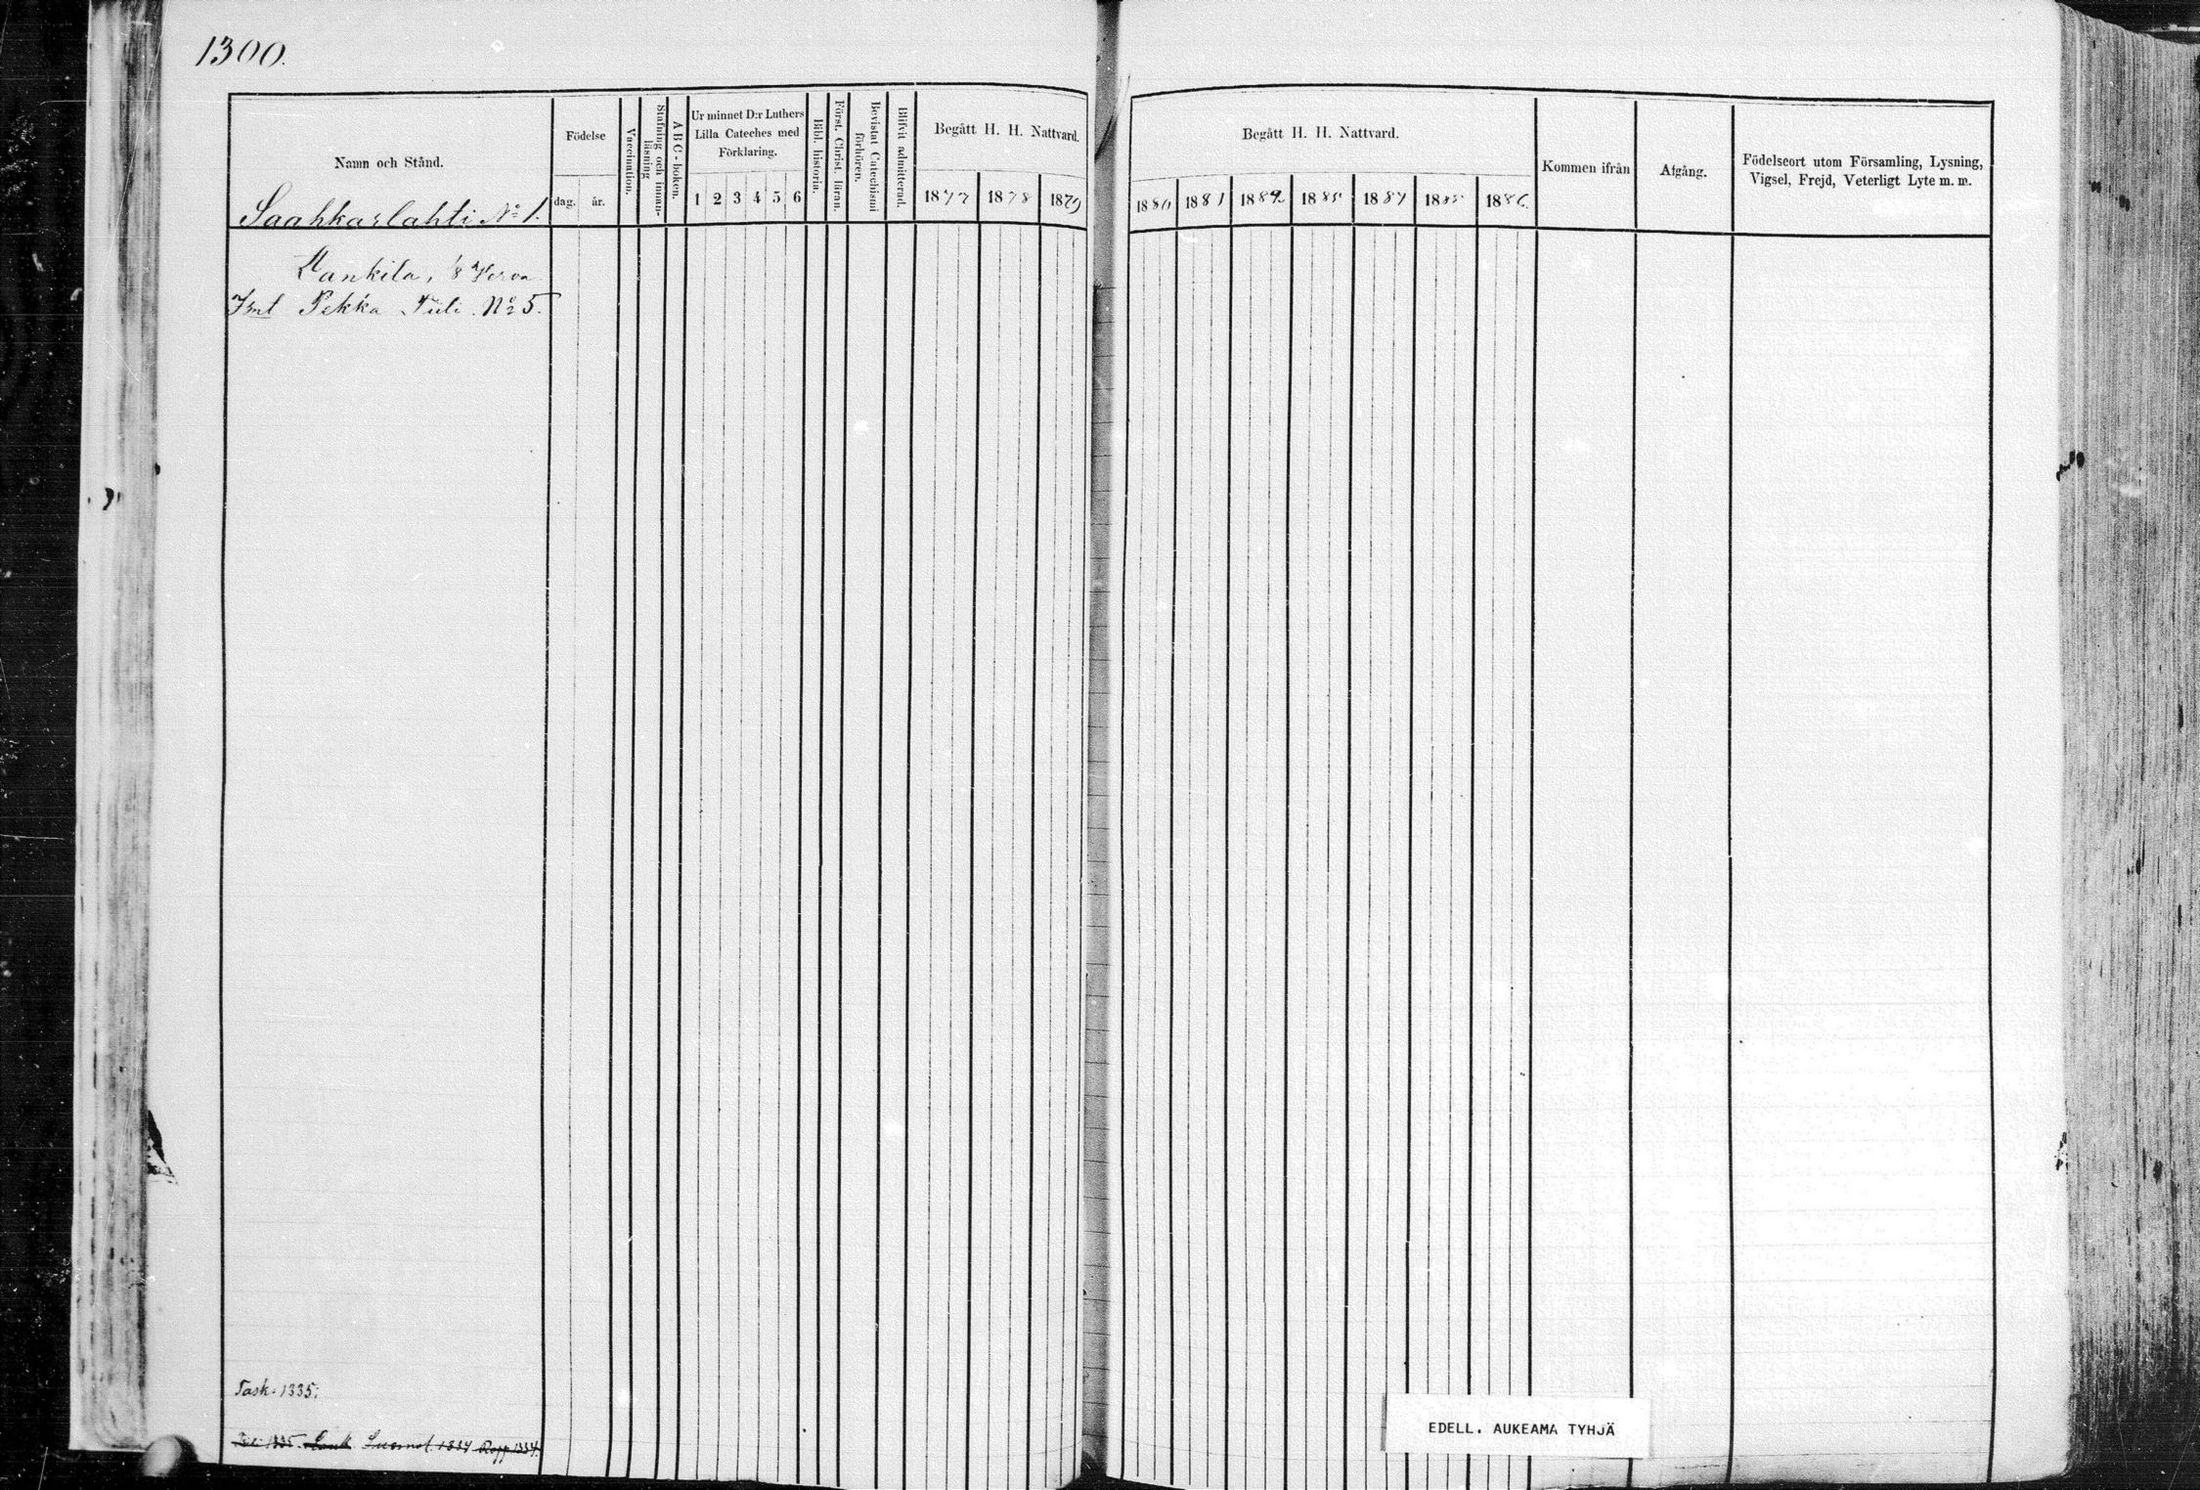 1300.
Namn och Stånd.
Saahkarlahti No 1.
Födelse
dag. år.
Vaccination.
Stafning och innanläsning
A B C - boken.
Ur minnet D:r Luthers
Lilla Cateches med
Förklaring.
1 2 3 4 5 6
Bibl. historia.
Först. Christ. läran.
Bevistat Catechismi förhören.
Blifvit admitterad.
Begått H. H. Nattvard.
1877 1878 1879
Begått H. H. Nattvard.
1880 1881 1882 1883 1884 1885 1886
Kommen ifrån
Afgång.
Födelseort utom Församling, Lysning,
Vigsel, Frejd, Veterligt Lyte m. m.
Pekka No 5.
Task. 1335.
1334 1334.
EDELL. AUKEAMA TYHJÄ